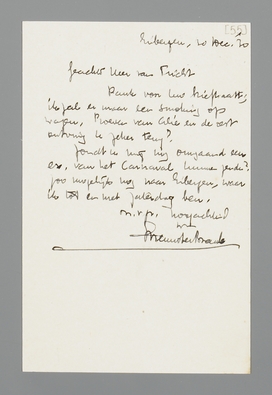 [55]
Eibergen, 20 Dec. 30
Geachte Heer van Tricht
Dank voor Uw briefkaart;
ik zal er maar een
wagen. Proeven van Clio en de rest
ontving U zeker reeds?
Zoudt U mij omgaand een
ex. van het Carnaval kunnen zenden?
zoo mogelijk nog naar Eibergen, waar
ik tot en met Zaterdag ben.
m.v.gr. hoogachtend
Uw